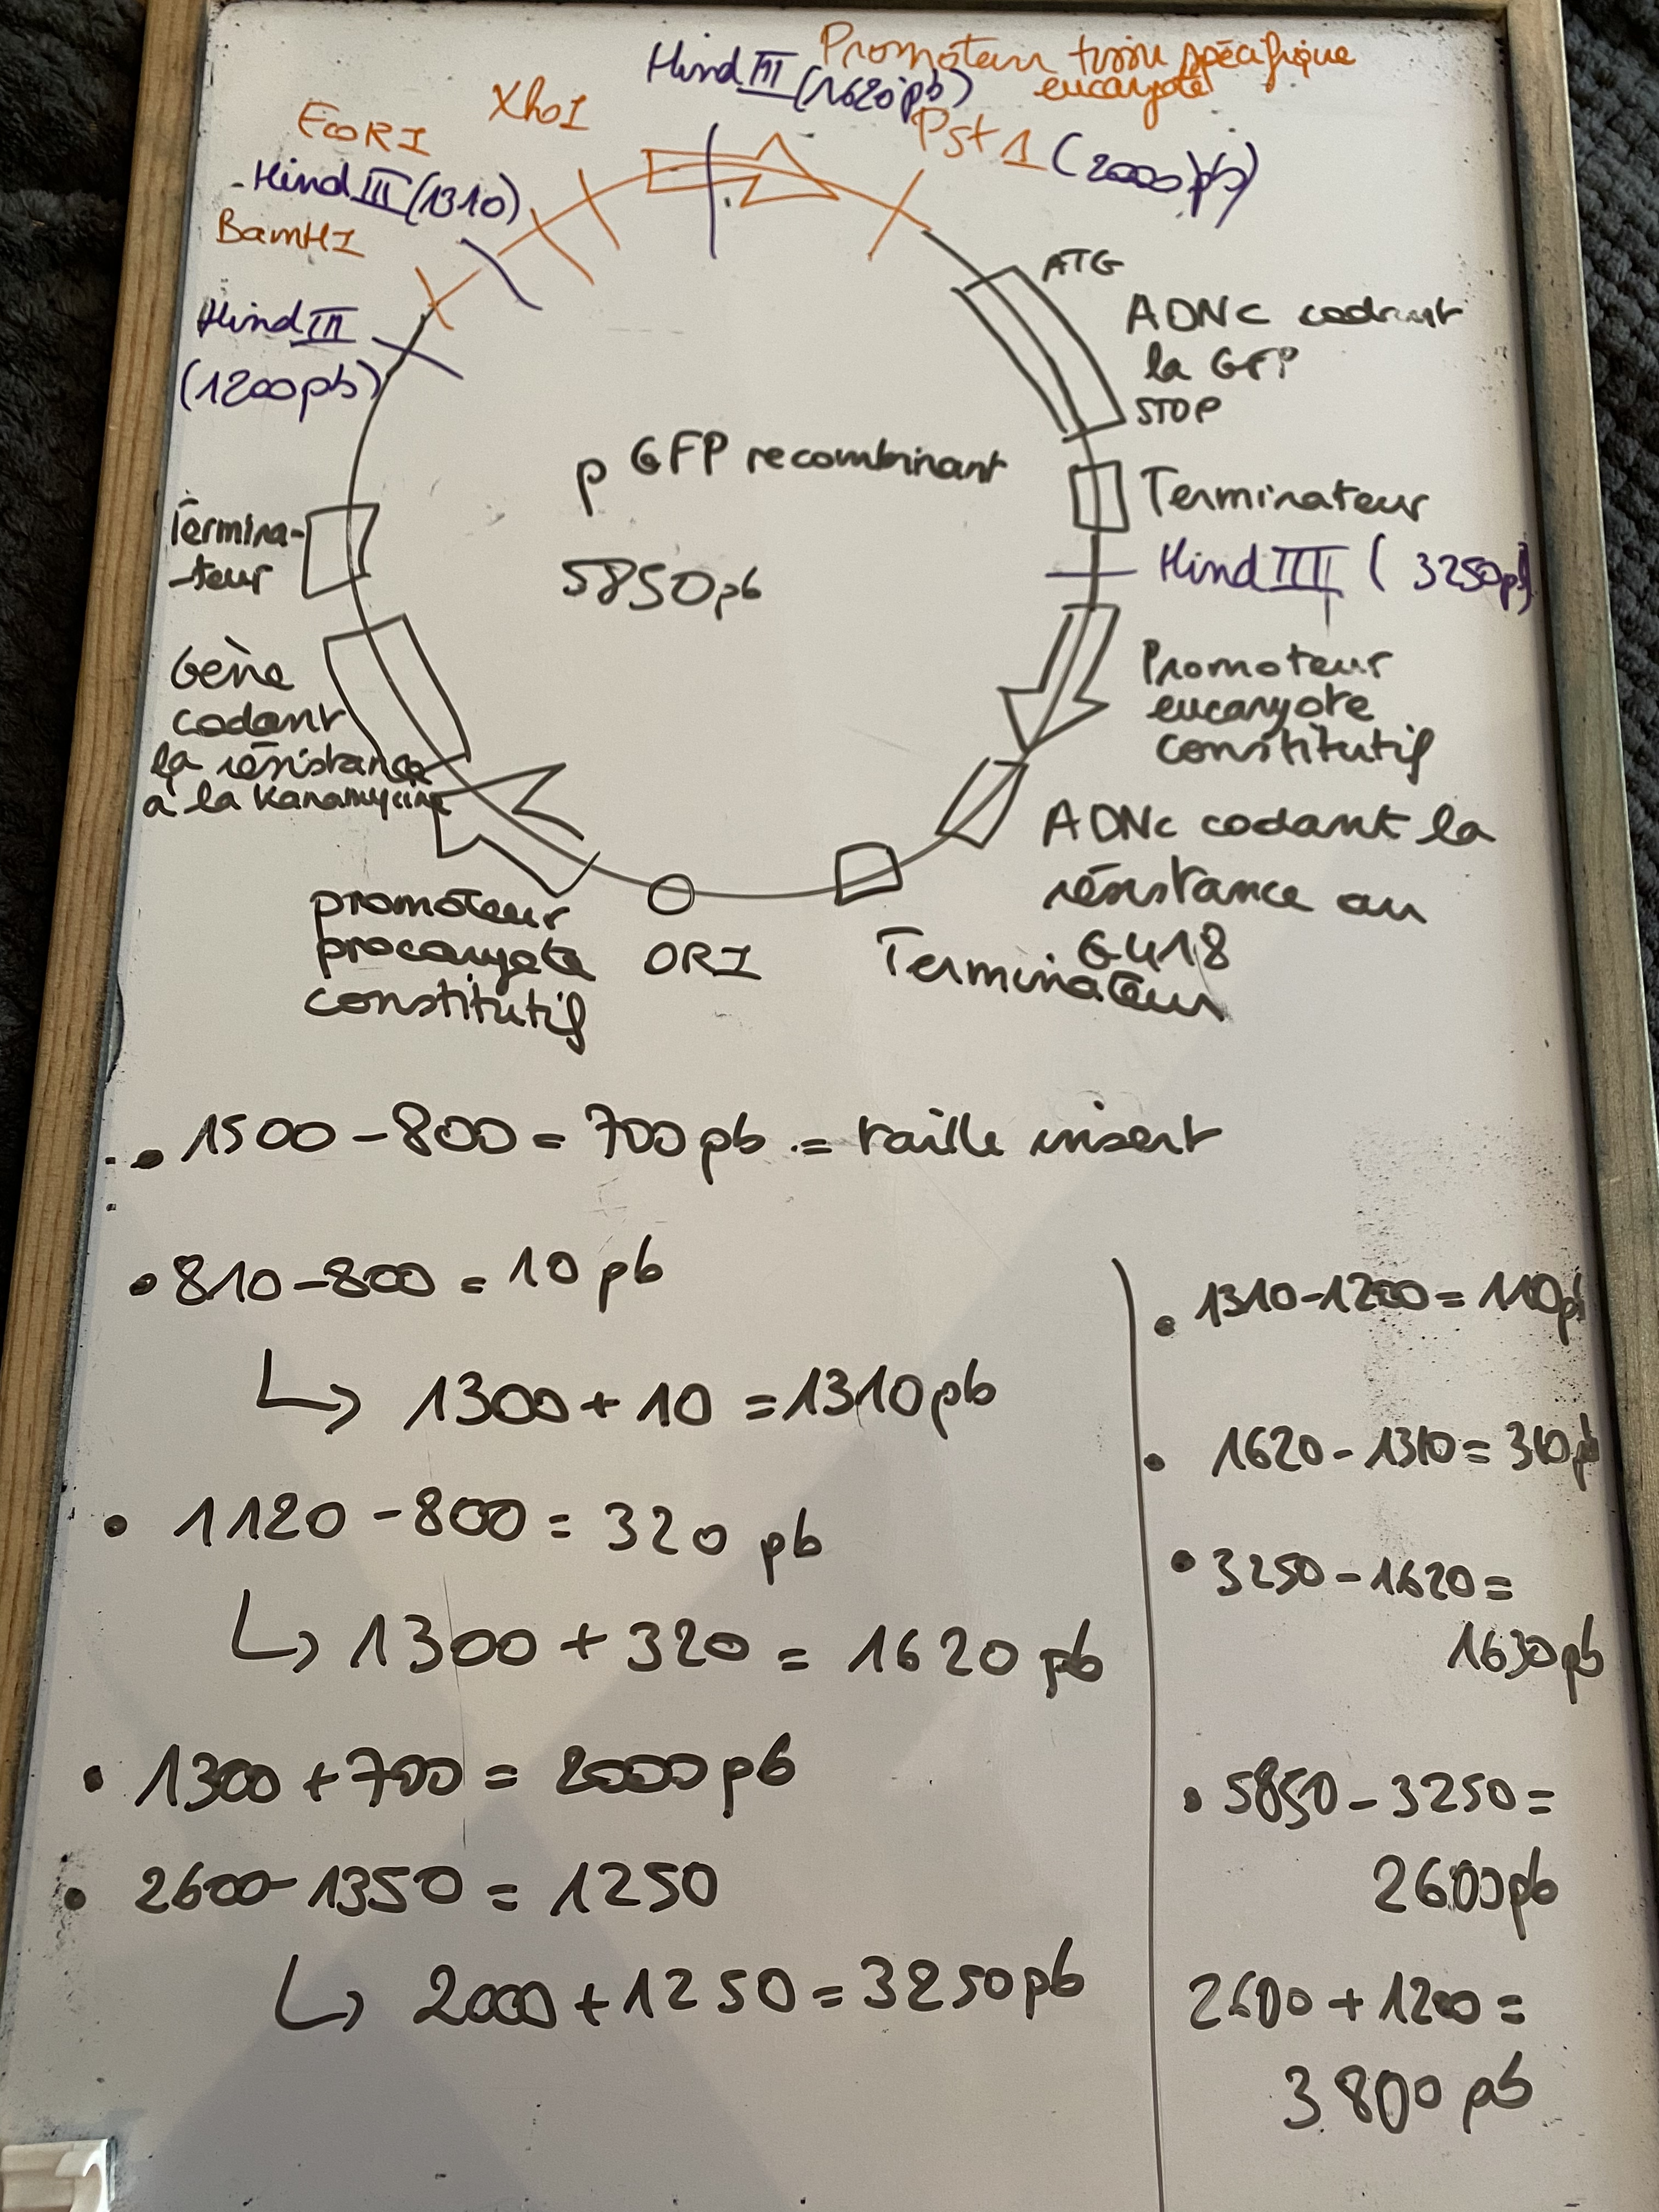 Promoteur tissu spécifique
eucaryote
Hind III (1620pb)
XhoI
EcoRI
Pst 1 (2000pb)
Hind III (1310)
BamHI
Hind III
(1200pb)
ATG
ADNc codant
la GFP
STOP
p GFP recombinant
5850pb
Terminateur
Hind III ( 3250pb)
Termina-
-teur
Gène
codant
la résistance
à la Kanamycine
Promoteur
eucaryote
constitutif
ADNc codant la
résistance au
G418
Terminateur
ORI
promoteur
procaryote
constitutif
• 1500 - 800 = 700 pb = taille insert
• 810 - 800 = 10 pb
↳ 1300 + 10 = 1310 pb
• 1120 - 800 = 320 pb
↳ 1300 + 320 = 1620 pb
• 1300 + 700 = 2000 pb
• 2600 - 1350 = 1250
↳ 2000 + 1250 = 3250 pb
• 1310 - 1200 = 110 pb
• 1620 - 1310 = 310 pb
• 3250 - 1620 =
1630 pb
• 5850 - 3250 =
2600 pb
2600 + 1200 =
3800 pb